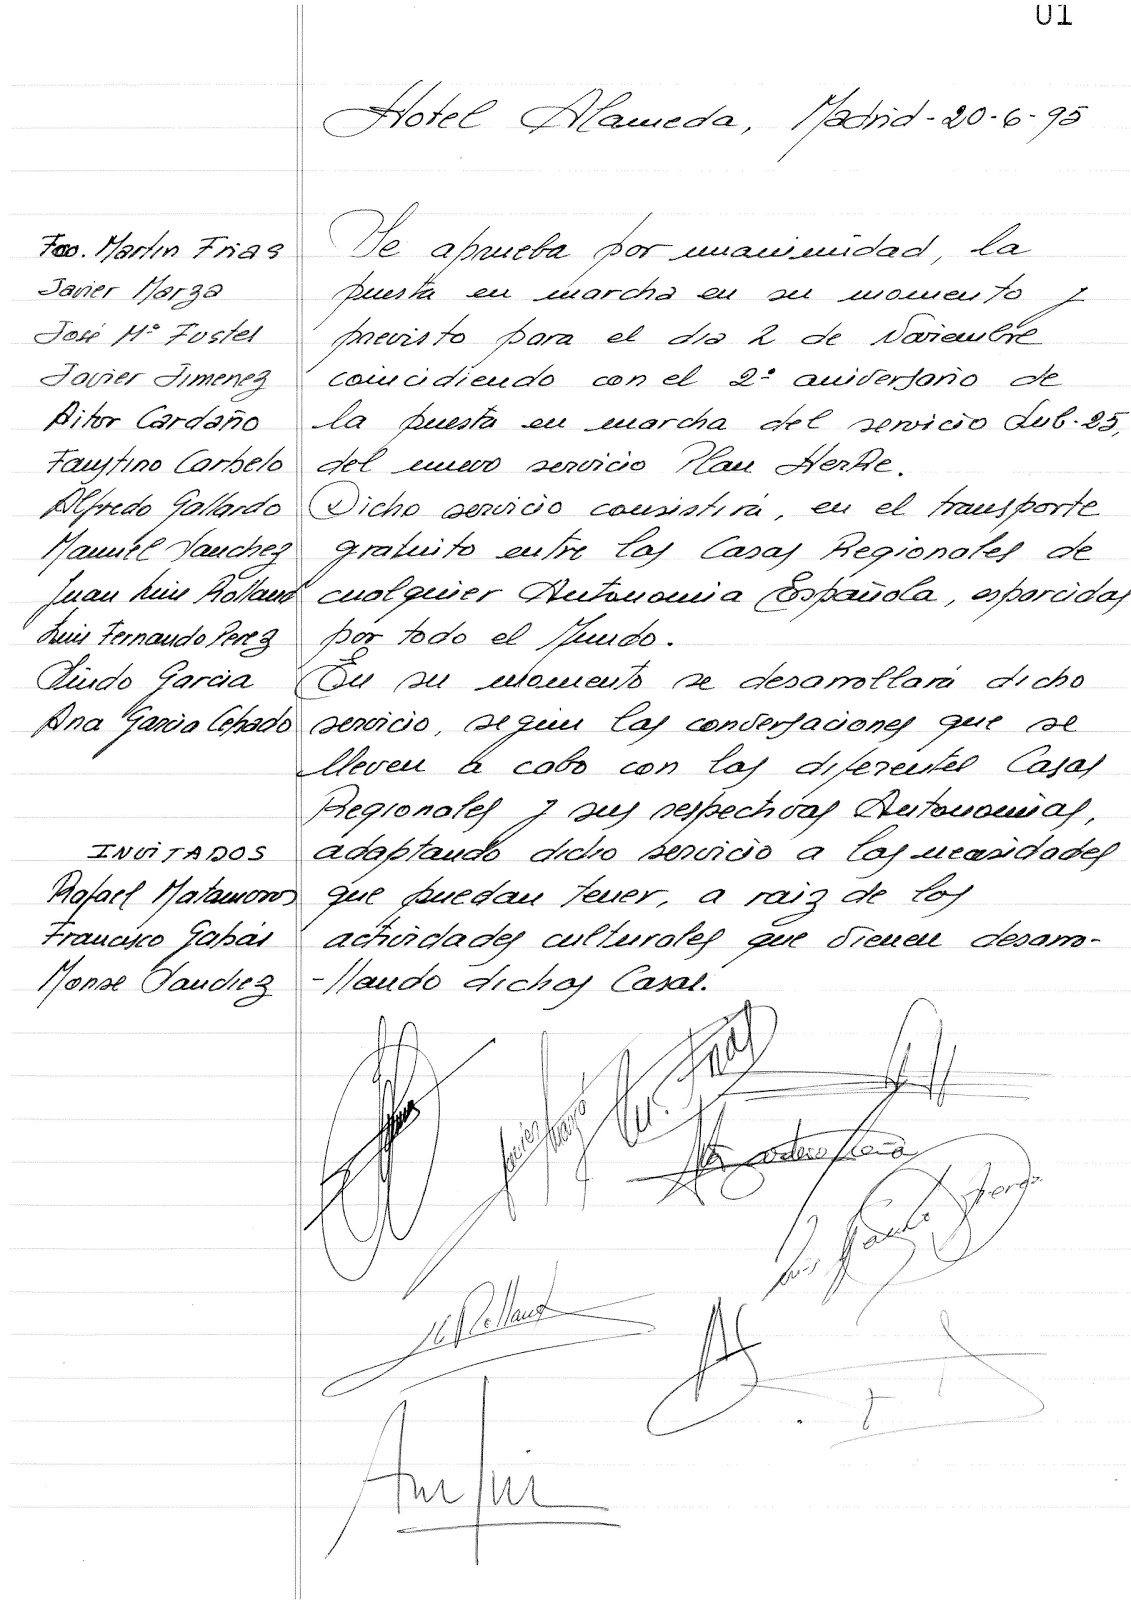 01
Hotel Alameda, Madrid-20-6-95
Fco. Martin Frias
Javier Marza
José Mª Fustel
Javier Jimenez
Aitor Cardaño
Faustino Carbelo
Alfredo Gallardo
Manuel Sanchez
Juan Luis Rolland
Luis Fernando Perez
Lindo Garcia
Ana Garcia
INVITADOS
Rafael Matamoros
Francisco Gabás
Monse Sanchez
Se aprueba por unanimidad, la
puesta en marcha en su momento y
previsto para el dia 2 de Noviembre
coincidiendo con el 2º aniversario de
la puesta en marcha del servicio Lub-25,
del nuevo servicio Plan Herke.
Dicho servicio consistirá, en el transporte
gratuito entre las Casas Regionales de
cualquier Autonomia Española, esparcidas
por todo el Mundo.
En su momento se desarrollará dicho
servicio, según las conversaciones que se
lleven a cabo con las diferentes Casas
Regionales y sus respectivas Autonomias,
adaptando dicho servicio a las necesidades
que puedan tener, a raiz de los
actividades culturales que vienen desarro-
-llando dichas Casas.
Javier Marzá
M. Frias
Luis
JL Rolland